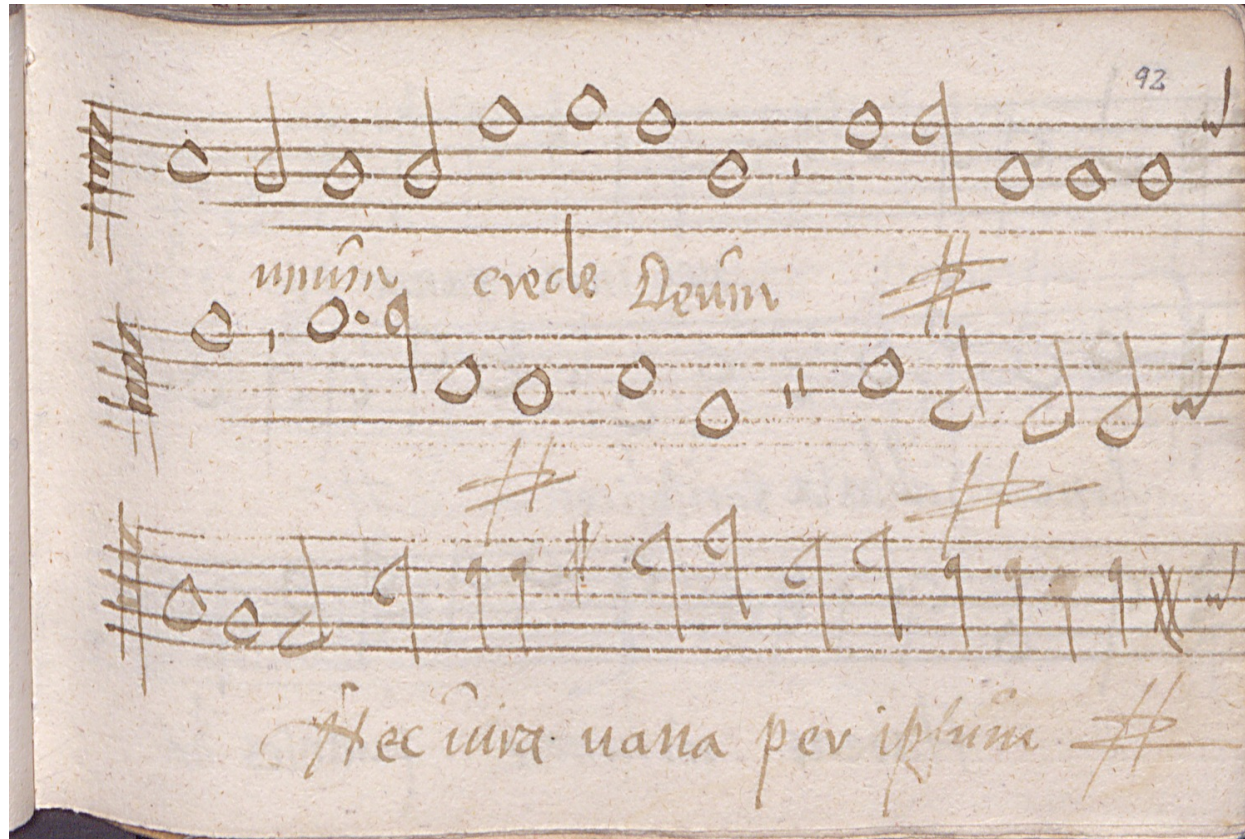 92
unum crede Deum
Nec iura vana per ipsum